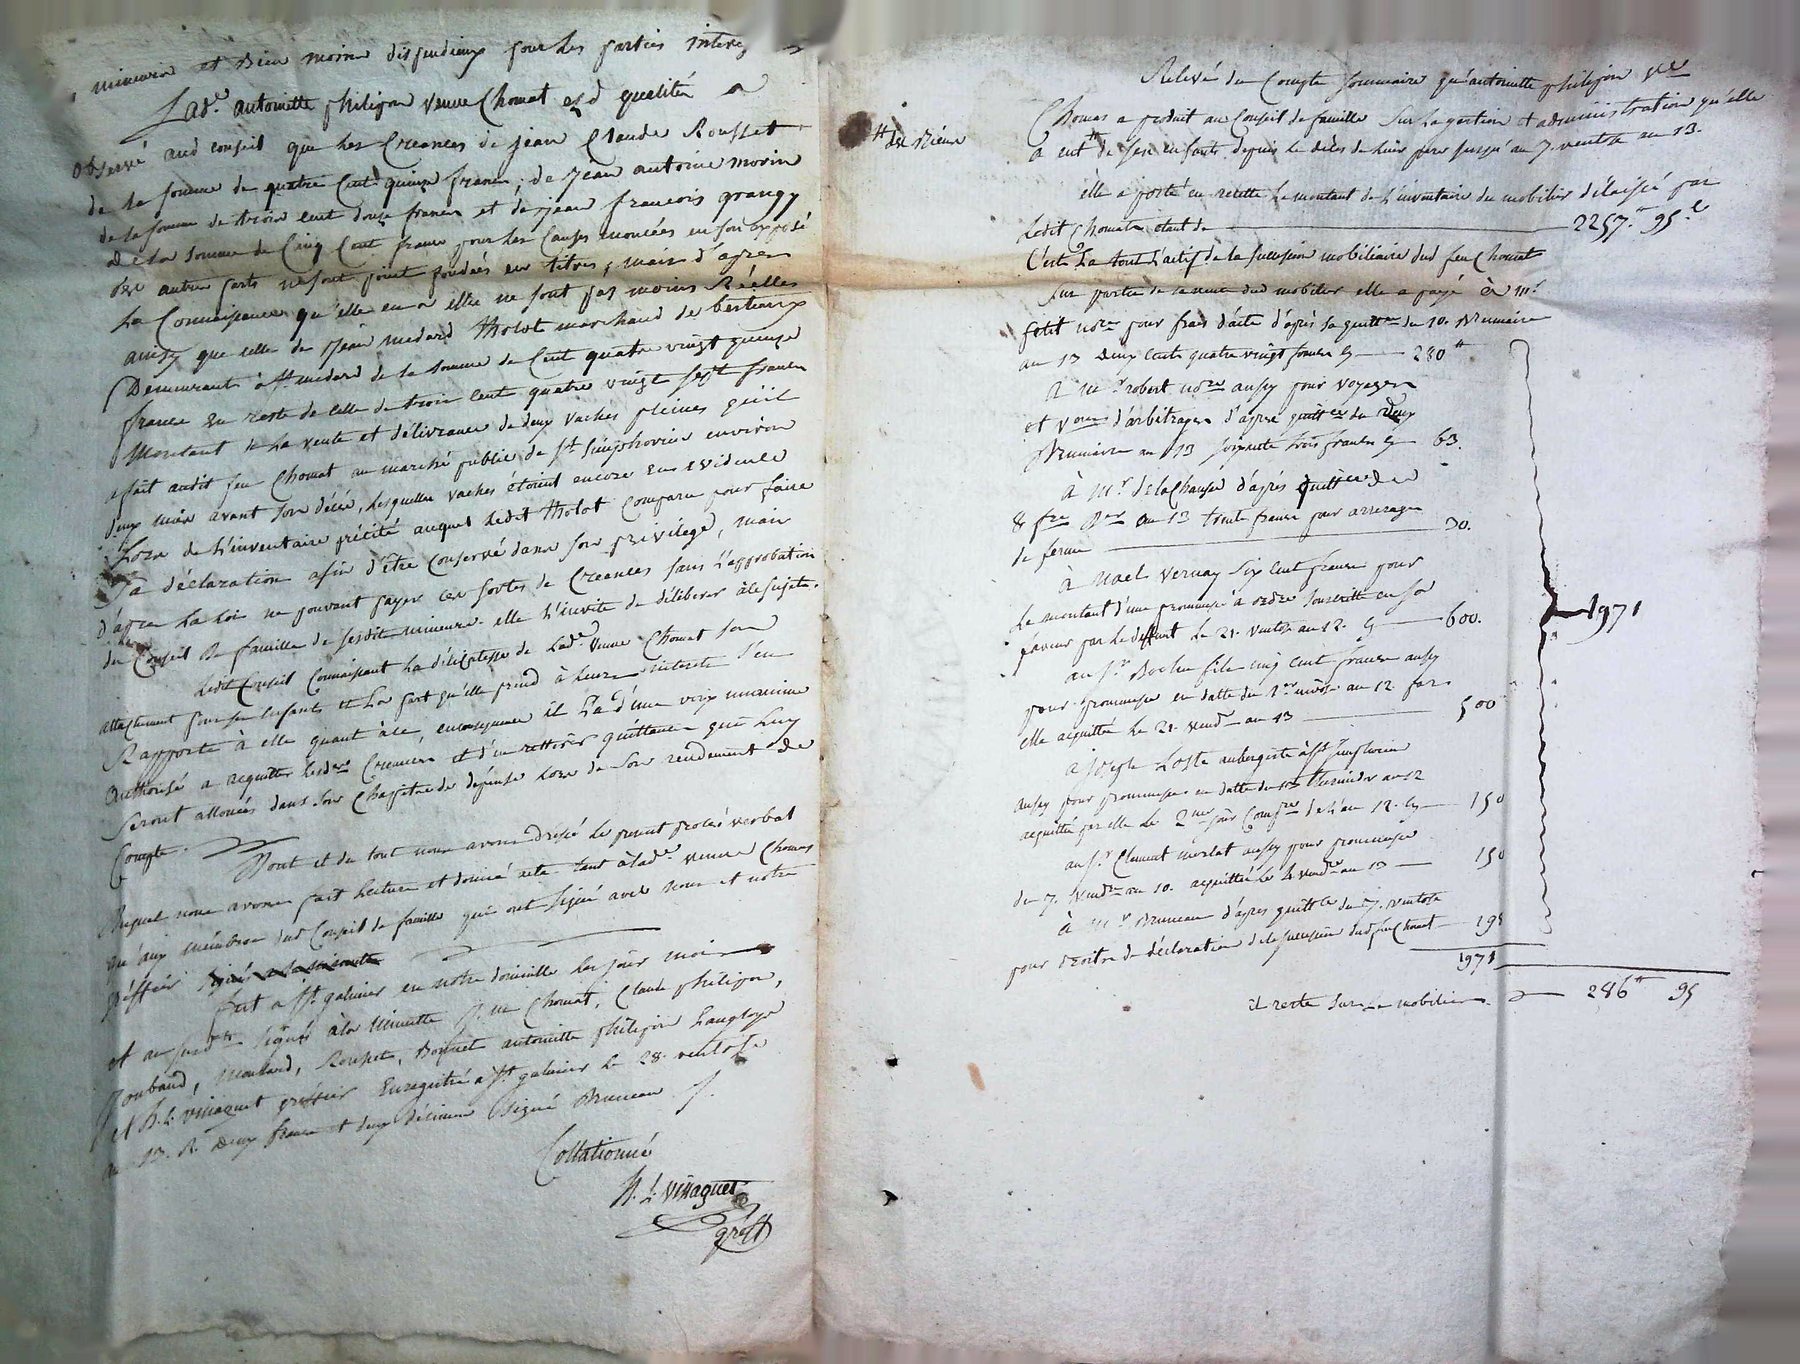 mineurs et Bien moins dispendieux pour les parties
Lade. antoinette philipon veuve Chomat esd qualités a
observé aud conseil que les Creances de jean Claude Rousset
de la somme de quatre Cent quinze francs, de jean antoine morin
de la somme de trois cent douze francs et de jean francois grangy
de la somme de Cinq Cent francs pour les Causes enoncées en son exposé
des autres parts ne sont point fondées sur titres, mais d'apres
la Connaissance qu'elle en a elles ne sont pas moins Réelles
ainsy que celle de jean medard tholot marchand de bestiaux
Demeurant à st medard de la somme de Cent quatre vingt quinze
francs En reste de celle de trois cent quatre vingt sept francs
Montant de la vente et délivrance de deux vaches pleines qu'il
a fait audit feu Chomat au marché public de st simphorien environ
deux mois avant son décés, lesquelles vaches étoient encore En Evidence
Lors de l'inventaire précité auquel ledit tholot Comparu pour faire
Sa déclaration afin d'être Conservé dans son privilege, mais
d'apres la loi ne pouvant payer ces sortes de Creances sans l'approbation
du Conseil De famille de sesdits mineurs. elle l'invite de déliberer à ce sujet.
Ledit Conseil Connaissant la délicatesse de lade. veuve Chomat son
attachement pour ses Enfants et la part qu'elle prend à leurs interets s'en
Rapporte à elle quant à ce, en consequence il l'a d'une voix unanime
authorisé a acquitter lesdes Creances et d'en rettirer quittances qui luy
Seront allouées dans son Chapitre de dépense lors de son rendement de
Compte.
Dont et du tout nous avons dressé le present procès verbal
Duquel nous avons fait lecture et donné acte tant à lade. veuve Chomat
qu'aux membres dud Conseil de famille qui ont signé avec nous et notre
gréffier
fait a st galmier en notre domicille les jour mois
et an susdits signés à la Minutte J. m Chomat, Claude philipon,
Joubaud, Moulard, Rousset, Boquet antoinette philipon
et h. L. vissaguet gréffier Enregistré a st galmier le 28. ventose
an 13. R. Deux francs et deux décimes Signé Bruneau
Collationné
h. L. vissaguet
greff
Relevé du Compte sommaire qu'antoinette philipon vve
Chomat a produit au Conseil de famille Sur la gestion et administration qu'elle
a eut # de ses enfants depuis le décés de leur pere jusqu'au 7. ventose an 13.
# des Biens
elle a porté en recette le montant de l'inventaire du mobilier délaissé par
ledit Chomat etant de 2257.# 95.c
C'est La tout l'actif de la succession mobiliaire dud feu Chomat
Sur partie de la vente dud mobilier elle a payé à Mr
petit nore pour frais d'acte d'après sa quittce du 10. Brumaire
an 13 Deux Cents quatre vingt francs cy 280#
a mr robert nore aussy pour voyages
et vaons d'arbitrages d'après quittce du Deux
Brumaire an 13 soixante trois francs cy 63.
à Mr delaChaise d'après quittce du
8 fre Der an 13 trente francs pour arrerages
de ferme 30.
à Nael Vernay Six Cent francs pour
Le montant d'une promesse à ordre souscritte en sa
faveur par le deffunt le 21. ventose an 12. cy 600.
au sr Bochu fils cinq cent francs aussy
pour promesse en datte du 1er nivose an 12 par
elle acquittée le 21. vendre an 13 500
à joseph Loste aubergiste à st simphorien
aussy pour promesse en datte du 12 thermidor an 12
acquittée par elle le 2me jour Compre de l'an 12. cy 150
au sr Clement merlat aussy pour promesse
du 7. vendre an 10. acquittée le 4 vendre an 13 150
à Mr Bruneau d'apres quittce du 7. ventose
pour droits de déclaration de la succession dud feu Chomat 198
1971
1971
il reste sur le mobilier 286# 95